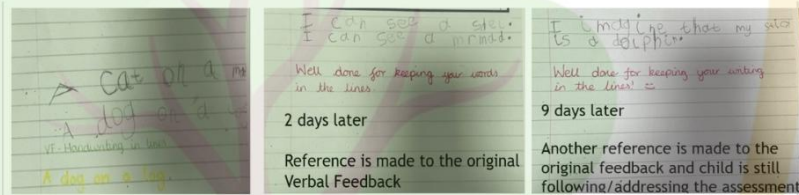 A cat on a
A dog on a
VF - Handwriting in lines
A dog on a log.
I can see a
I can see a mrmad.
Well done for keeping your words
in the lines
2 days later
Reference is made to the original
Verbal Feedback
I imagine that my
is a dolphin.
Well done for keeping your writing
in the lines!
9 days later
Another reference is made to the
original feedback and child is still
following/addressing the assessment